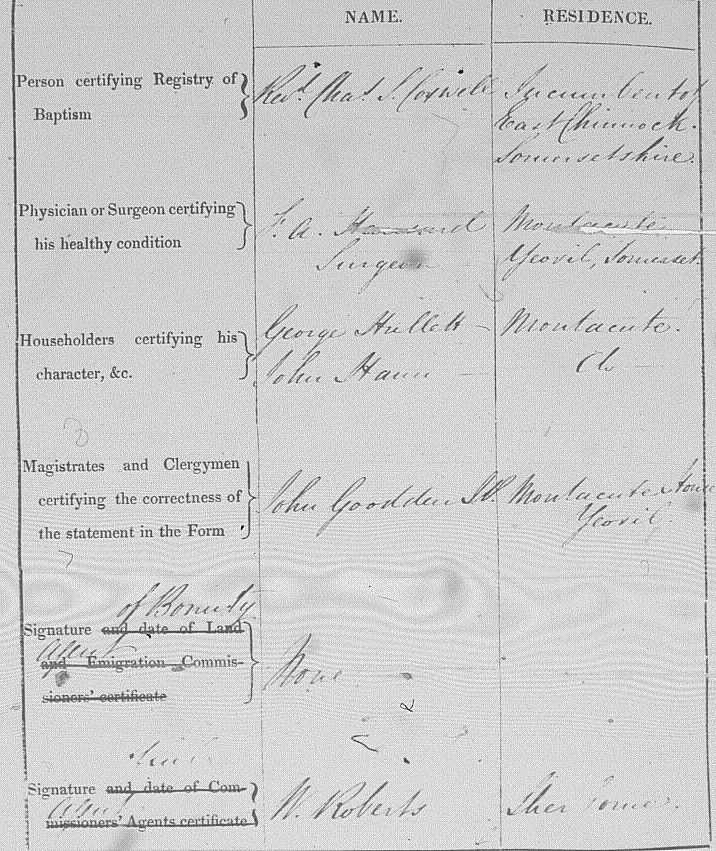 NAME. RESIDENCE.
Person certifying Registry of Revd. Chas. S. Coxwell Incumbent of
Baptism East Chinnock.
Somersetshire.
Physician or Surgeon certifying F. A. Montacute
his healthy condition Surgeon Yeovil, Somerset.
Householders certifying his George Hullett – Montacute.
character, &c. John Hann –
Magistrates and Clergymen
certifying the correctness of John Goodden Montacute House
the statement in the Form Yeovil.
of Bounty
Signature and date of Land
Agent
and Emigration Commis- None
sioners' certificate
Signature and date of Com- W. Roberts
Agent
missioners' Agents certificate